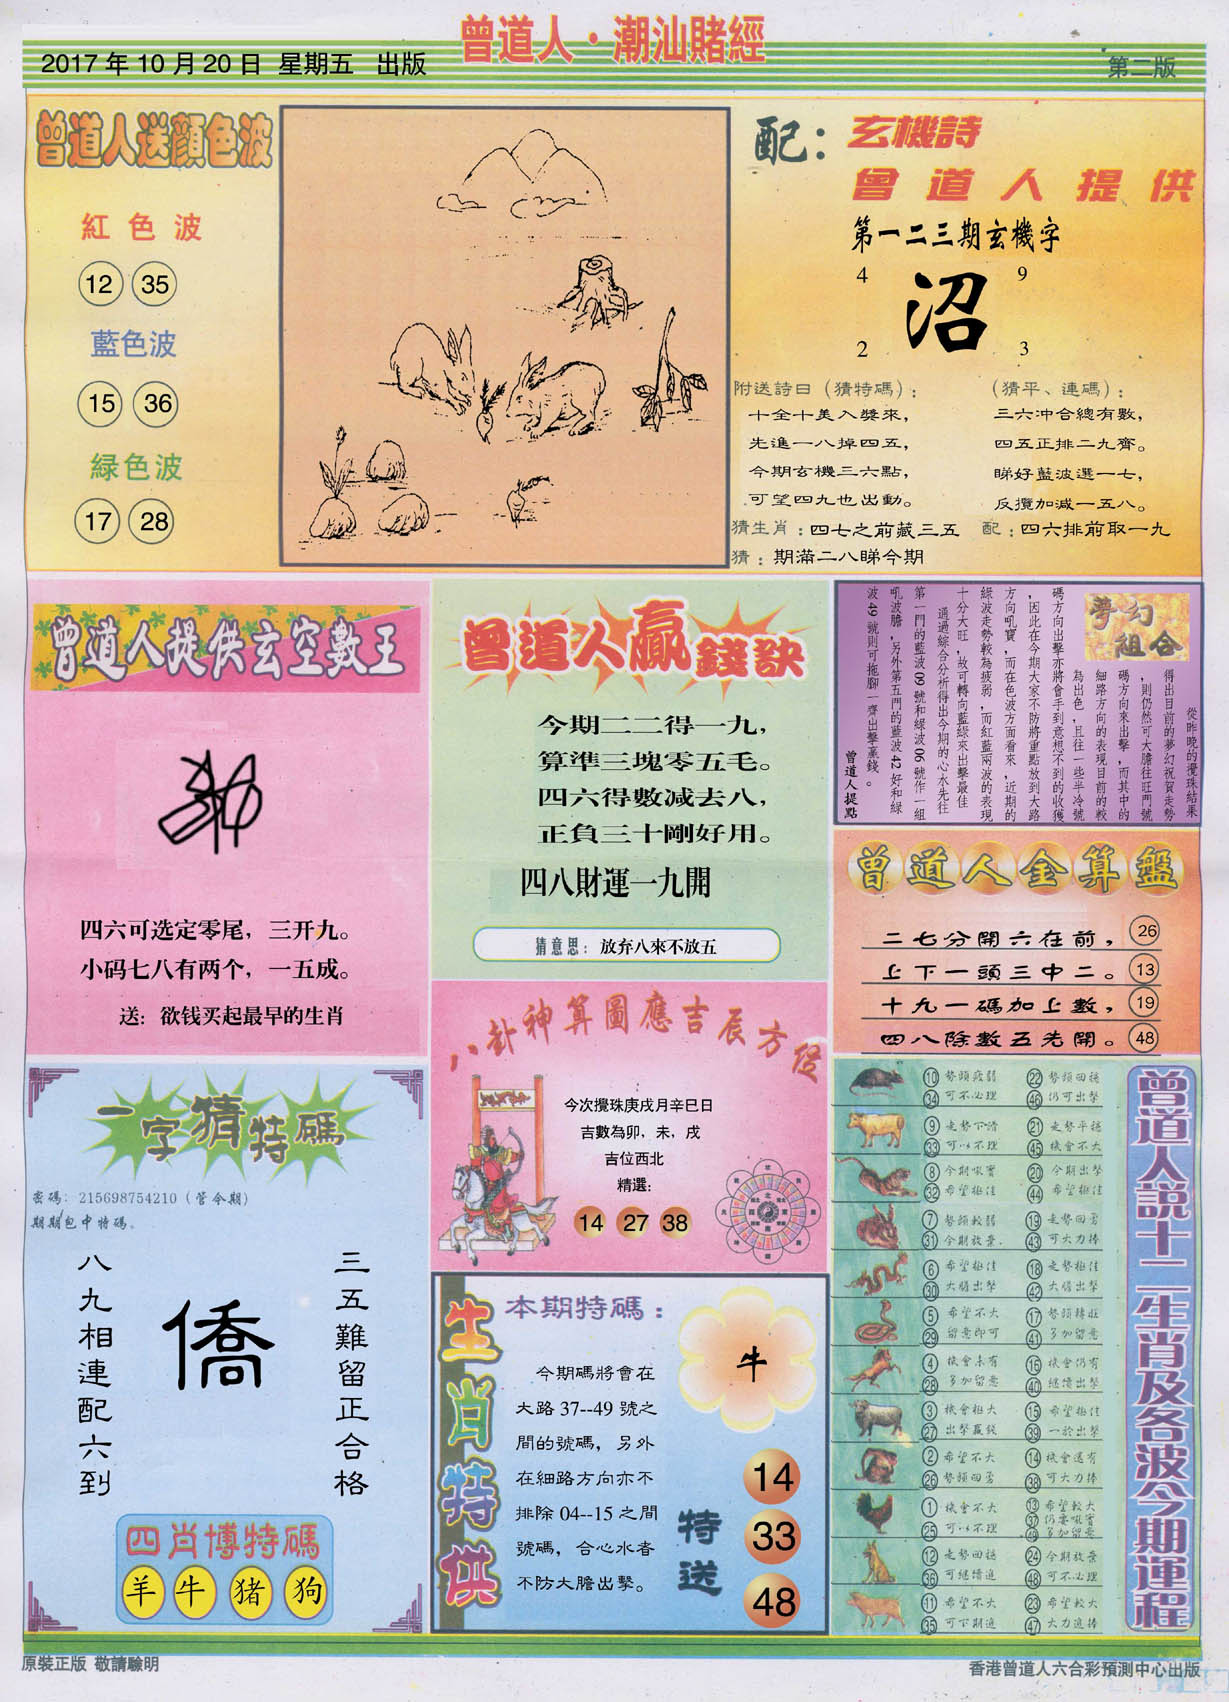 曾道人·潮汕賭經
2017年10月20日 星期五 出版
第二版
曾道人送顏色波
紅色波
12 35
藍色波
15 36
緑色波
17 28
配：
玄機詩
曾道人提供
第一二三期玄機字
4 9
沼
2 3
附送詩曰（猜特碼）：
十全十美入獎來，
先進一八掉四五，
今期玄機三六點，
可望四九也出動。
（猜平、連碼）：
三六冲合總有數，
四五正排二九齊。
睇好藍波選一七，
反攬加減一五八。
猜生肖：四七之前藏三五
配：四六排前取一九
猜：期滿二八睇今期
曾道人提供玄空數王
四六可选定零尾，三开九。
小码七八有两个，一五成。
送：欲钱买起最早的生肖
曾道人贏錢訣
今期二二得一九，
算準三塊零五毛。
四六得數減去八，
正負三十剛好用。
四八財運一九開
猜意思：放弃八來不放五
夢幻組合
從昨晚的攪珠結果
得出目前的夢幻祝賀走勢
，則仍然可大膽往旺門號
碼方向來出擊，而其中的
細路方向的表現目前的較
為出色，且往一些半冷號
碼方向出擊亦將會手到意想不到的收獲
，因此在今期大家不防將重點放到大路
方向吼寶，而在色波方面看來，近期的
綠波走勢較為疲弱，而紅藍兩波的表現
十分大旺，故可轉向藍綠來出擊最佳
通過綜合分析得出今期的心水先往
第一門的藍波09號和綠波06號作一組
吼波膽，另外第五門的藍波42好和綠
波49號則可拖腳一齊出擊贏錢。
曾道人提點
曾道人金算盤
二七分開六在前， 26
上下一頭三中二。 13
十九一碼加上數， 19
四八除數五先開。 48
八卦神算圖應吉辰方位
今次攪珠庚戌月辛巳日
吉數為卯，未，戌
吉位西北
精選：
14 27 38
一字猜特碼
密碼：215698754210（管今期）
期期包中特碼。
三五難留正合格
僑
八九相連配六到
四肖博特碼
羊 牛 猪 狗
生肖特供
本期特碼：
牛
今期碼將會在
大路37--49號之
間的號碼，另外
在細路方向亦不
排除04--15之間
號碼，合心水者
不防大膽出擊。
特送
14
33
48
曾道人説十二生肖及各波今期運程
10 34 勢頭疲弱 可不必理
22 46 勢頭回穩 仍可出擊
9 33 走勢下滑 可以不理
21 45 走勢平穩 機會不大
8 32 今期吼寶 希望極佳
20 44 今期出擊 希望極佳
7 31 勢頭較弱 今期放棄
19 43 走勢回勇 可大力捧
6 30 希望極佳 大膽出擊
18 42 走勢極佳 大膽出擊
5 29 希望不大 留意即可
17 41 勢頭轉旺 多加留意
4 28 機會未有 多加留意
16 40 機會仍有 繼續出擊
3 27 機會極大 出擊贏錢
15 39 希望極佳 一於出擊
2 26 希望不大 勢頭回勇
14 38 機會還有 可大力捧
1 25 機會不大 可以不理
13 37 49 希望較大 仍要吼寶 多加留意
12 36 走勢回穩 可繼續追
24 48 今期放棄 可不必理
11 35 希望不大 可下期追
23 47 希望較大 大力追捧
原裝正版 敬請驗明
香港曾道人六合彩預測中心出版